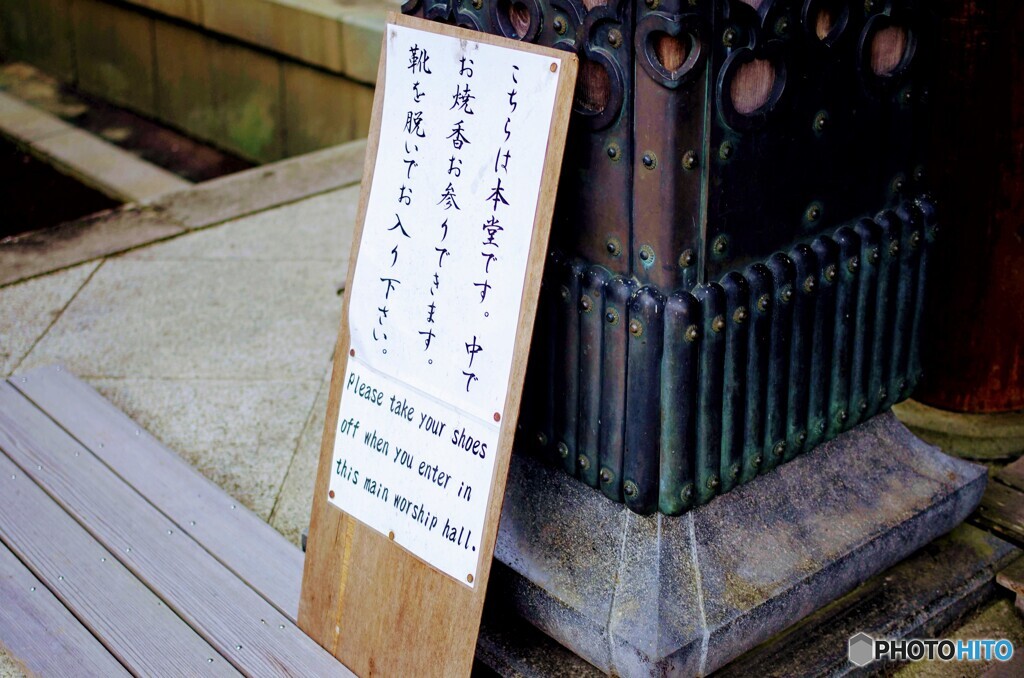 こちらは本堂です。中で
お焼香お参りできます。
靴を脱いでお入り下さい。
Please take your shoes
off when you enter in
this main worship hall.
PHOTOHITO